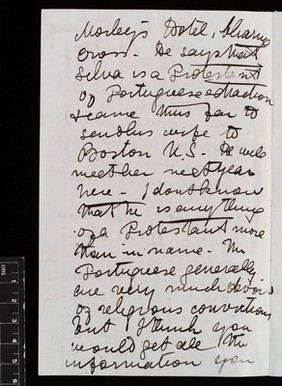 Morley's Hotel, Charing
Cross - He says that
Silva is a Protestant
of Portuguese extraction
& came thus far to
send his wife to
Boston U.S. He will
meet her next year
here - I don't know
that he is anything
of a Protestant more
than in name. The
Portuguese generally
are very much devoid
of religious convictions
but I think you
would get all the
information you